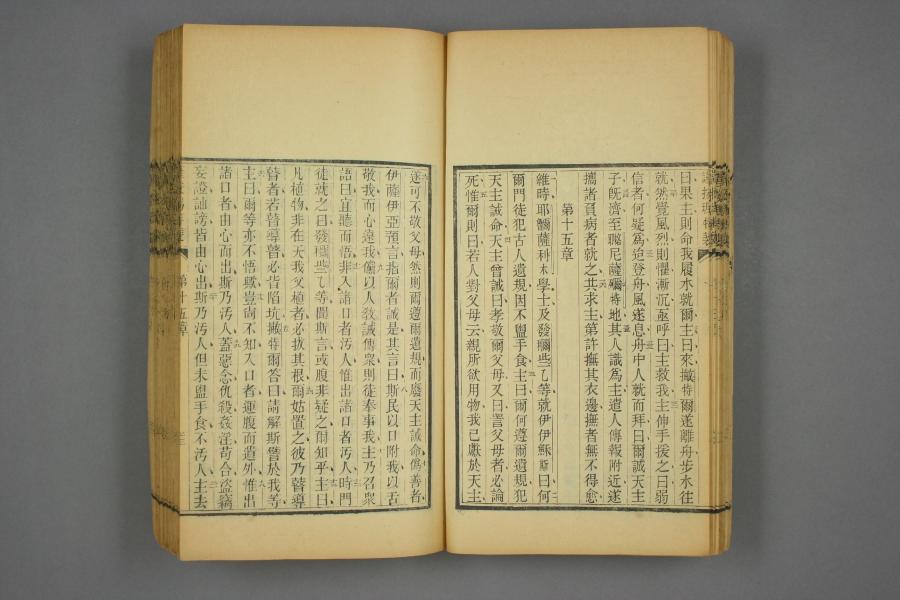 曰果主則命我履水就爾主曰來撇特爾遂離舟步水往
就然覺風烈則懼漸沉亟呼曰主救我主伸手援之曰弱
信者何疑為迨登舟風遂息舟中人就而拜曰爾誠天主
子旣濟至 尼薩 特地其人識為主遣人傳報附近遂
攜諸負病者就之共求主第許撫其衣邊撫者無不得愈
第十五章
維時耶 薩科木學士及發 些乙等就伊伊穌斯曰何
爾門徒犯古人遺規因不盥手食主曰爾何遵爾遺規犯
天主誡命天主曾誡曰孝敬爾父母又曰詈父母者必論
死惟爾則曰若人對父母云親所欲用物我已獻於天主
遂可不敬父母然則爾遵爾遺規而廢天主誡命僞善者
伊薩伊亞預言指爾者誠是其言曰斯民以口附我以舌
敬我而心遠我僞以人敎誡傳衆則徒奉事我主乃召衆
語曰宜聽而悟非入諸口者汚人惟出諸口者汚人時門
徒就之曰發 些乙等聞斯言或腹非疑之爾知乎主曰
凡植物非在天我父植者必拔其根爾姑置之彼乃瞽導
瞽者若瞽導瞽必皆陷坑撇特爾答曰請解斯譬於我等
主曰爾等亦不悟歟豈尙不知入口者運腹而遺外惟出
諸口者由心而出斯乃汚人蓋惡念仇殺姦淫苟合盜竊
妄證訕謗皆由心出斯乃汚人但未盥手食不汚人主去
第十五章